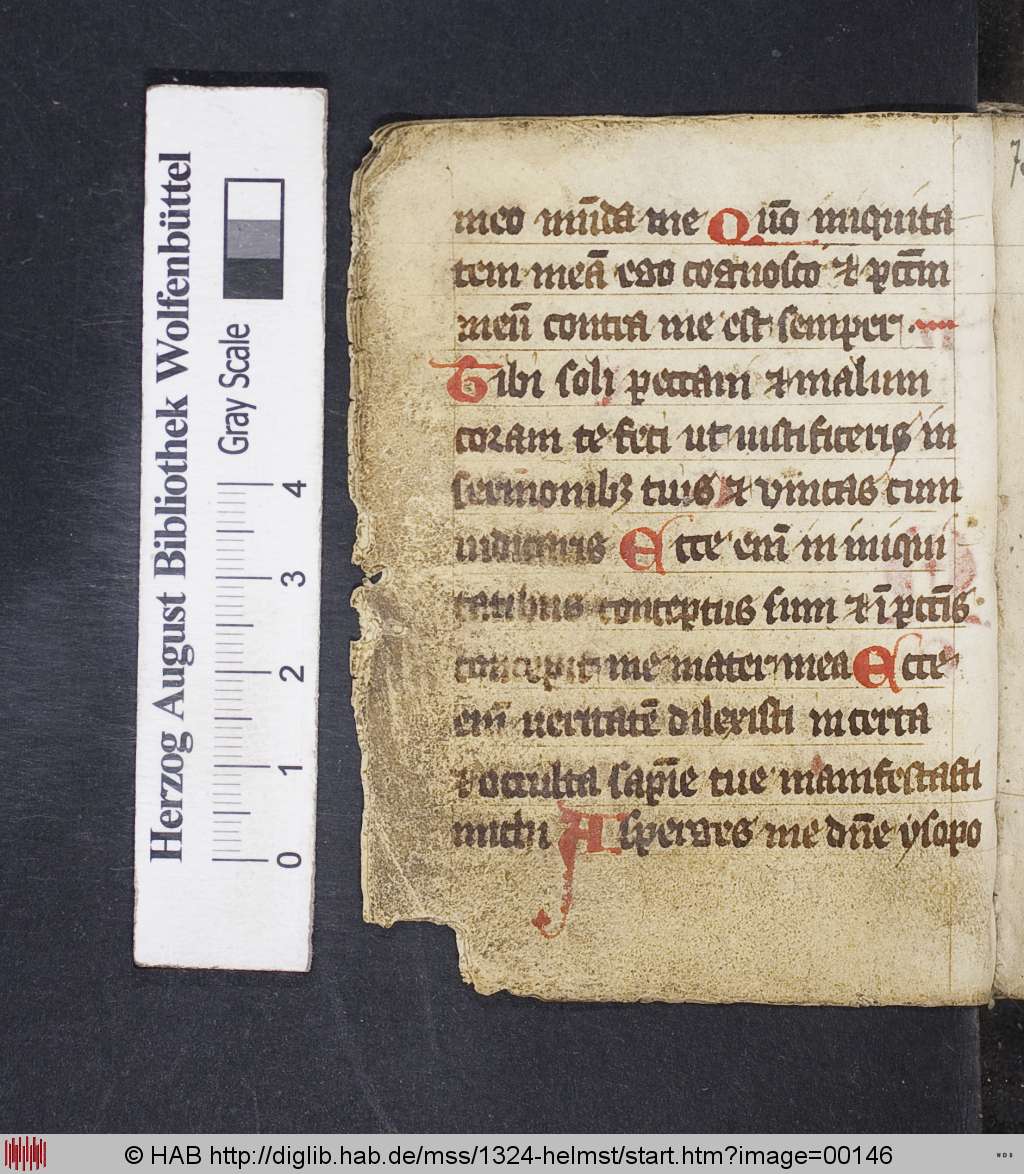 Herzog August Bibliothek Wolfenbüttel
Gray Scale
4
3
2
1
0
meo mūda me Qūo iniquita
tem meā ego cognosco ⁊ pctm̄
meū contra me est semper .
Tibi soli peccaui ⁊ malum
coram te feci ut iustificeris in
sermonibꝫ tuis ⁊ vincas cum
iudicaris Ecce eni̅ in iniqui
tatibus conceptus sum ⁊ ī pctis̄
concepit me mater mea Ecce
eni̅ ueritatē dilexisti incerta
⁊ occulta sapīe tue manifestasti
michi Asperges me dn̄e ysopo
7
© HAB http://diglib.hab.de/mss/1324-helmst/start.htm?image=00146
WDB